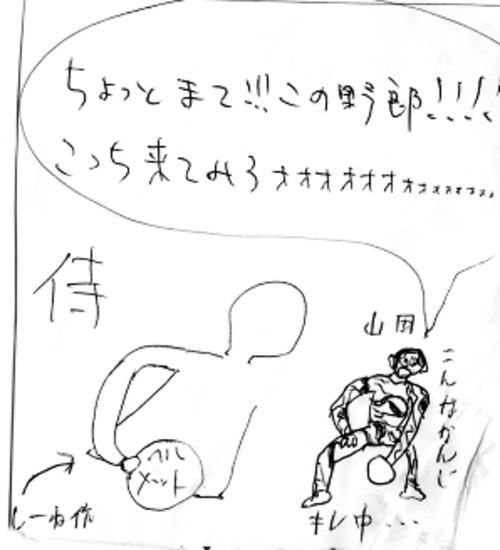 ちょっとまて!!!この野郎!!!!
こっち来てみろォォォォォォォォォォォォォォ
侍
山田
こんなかんじ
ヘル
メット
キレ中...